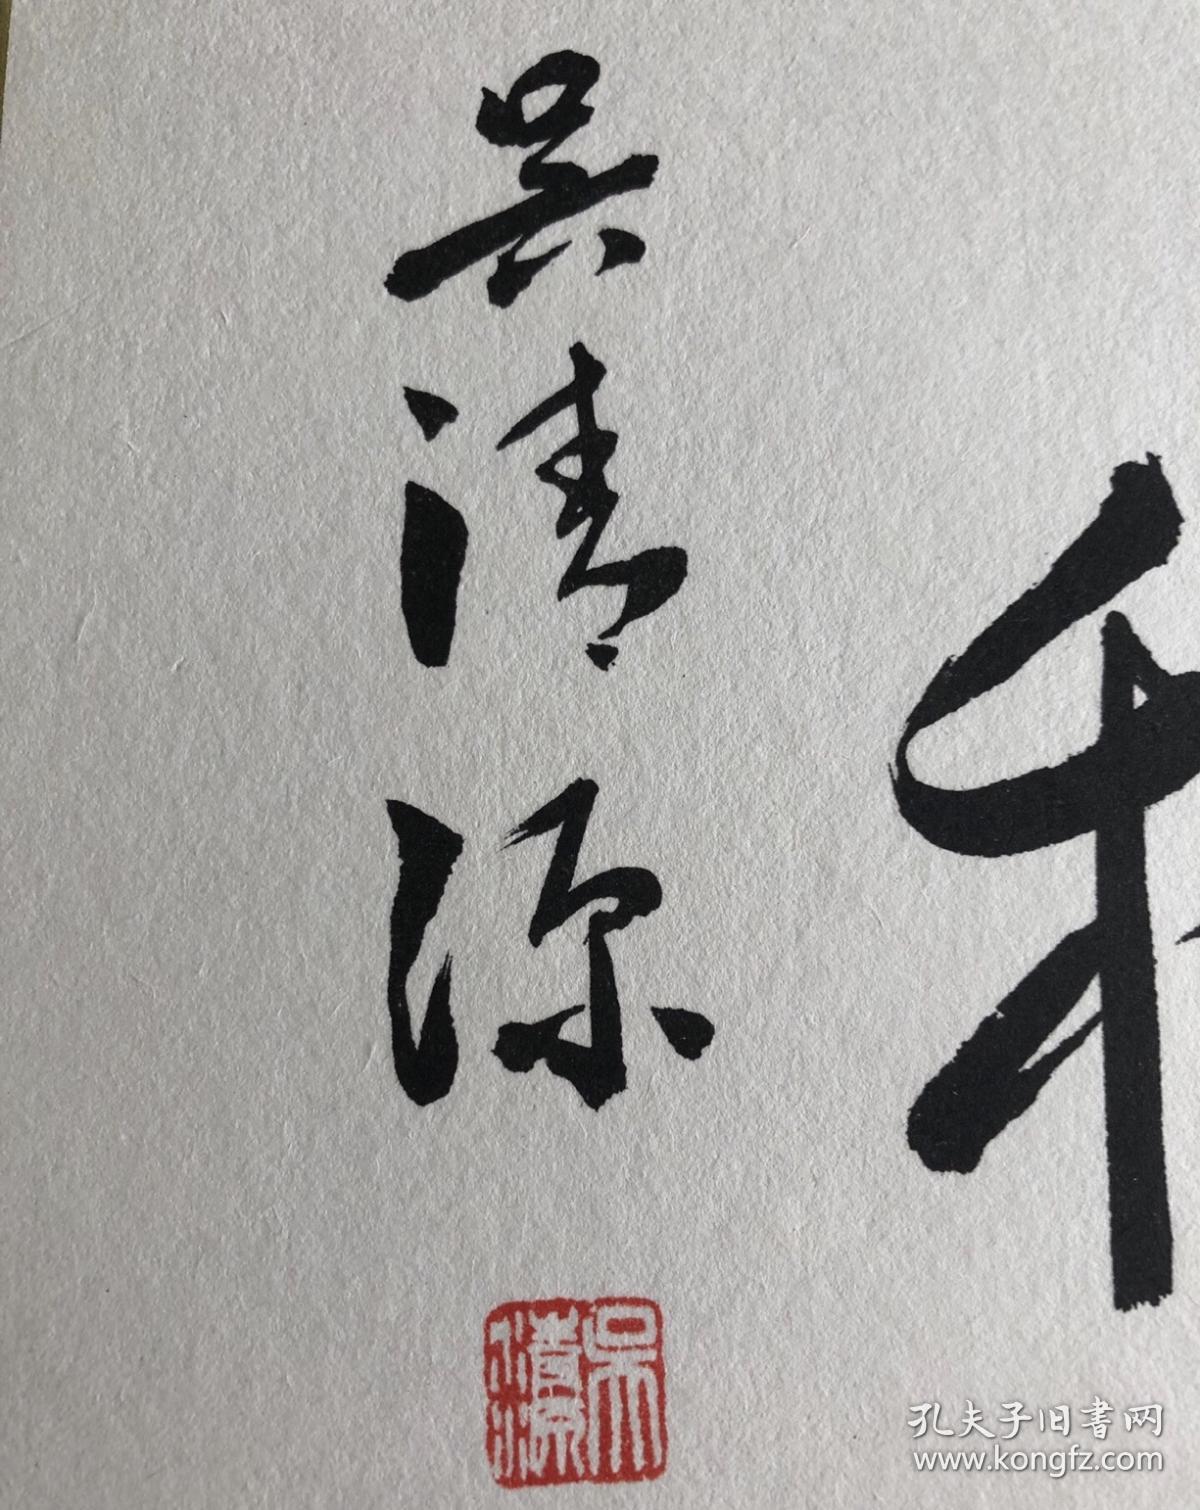 吴清源
吴清源
孔夫子旧书网
www.kongfz.com